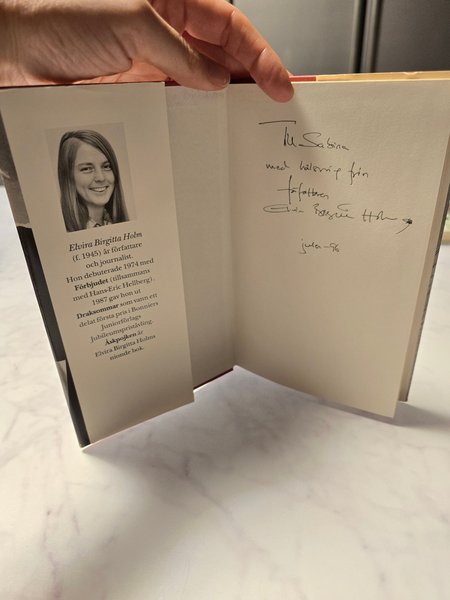 Elvira Birgitta Holm
(f. 1945) är författare
och journalist.
Hon debuterade 1974 med
Förbjudet (tillsammans
med Hans-Eric Hellberg).
1987 gav hon ut
Draksommar som vann ett
delat första pris i Bonniers
Juniorförlags
Jubileumspristävling.
Åskpojken är
Elvira Birgitta Holms
nionde bok.
Till Sabina
med hälsning från
författaren
Elvira Birgitta Holm
julen -96